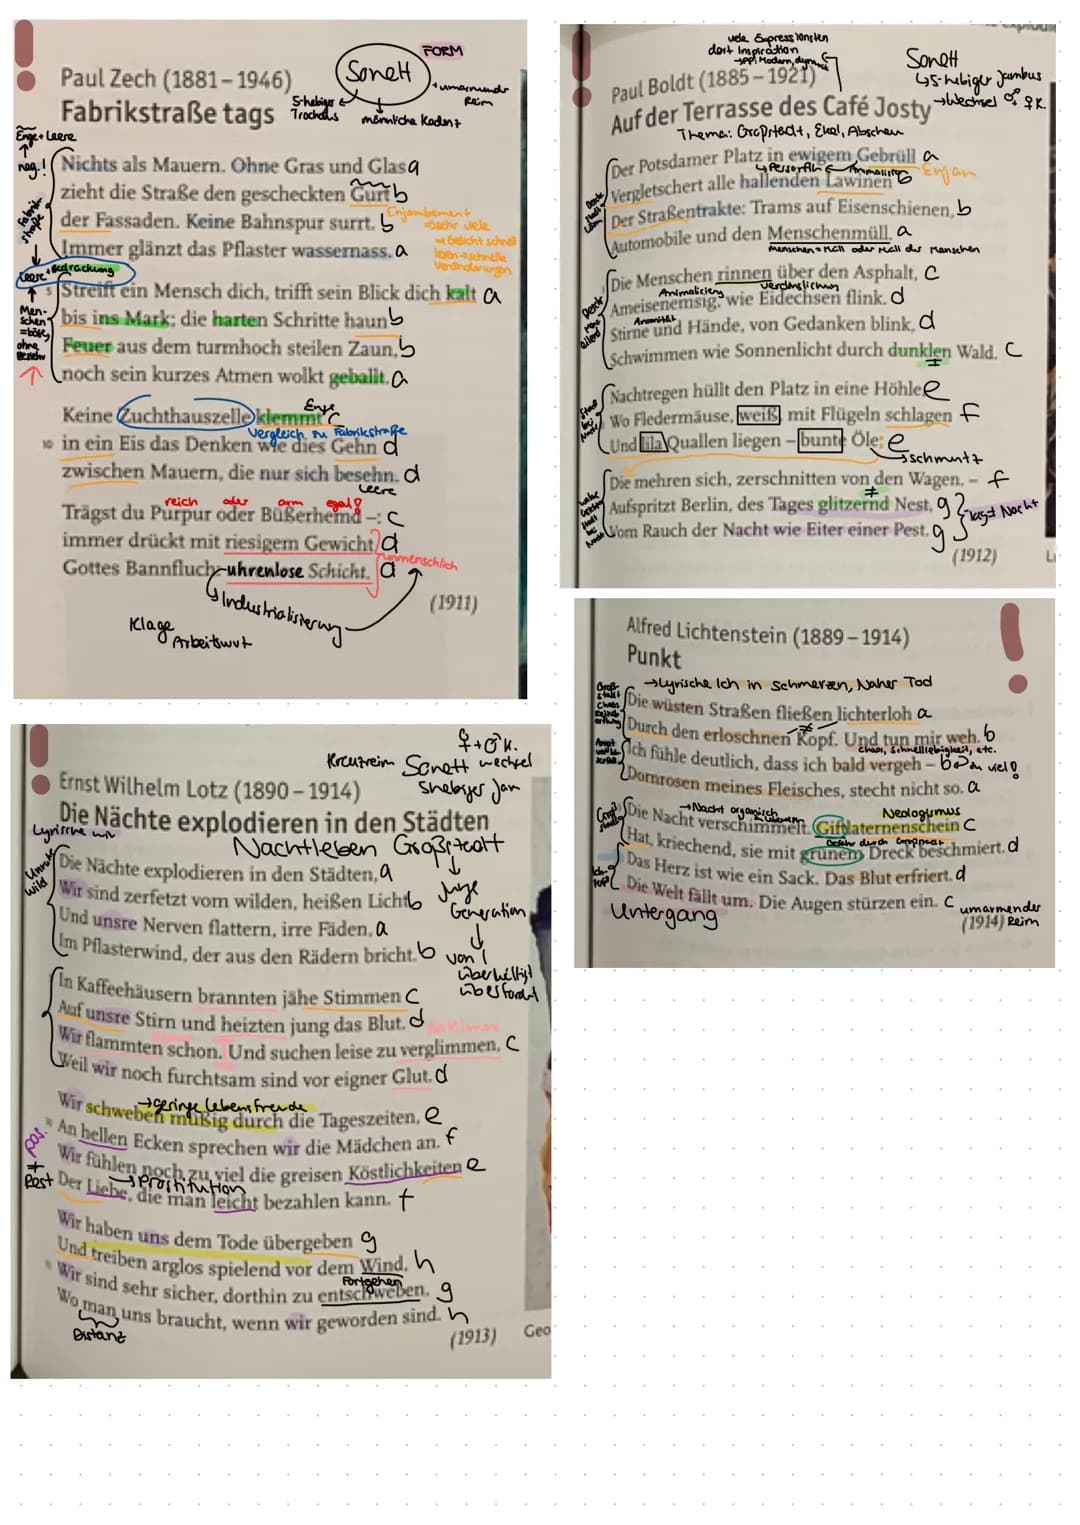 Paul Zech (1881–1946)
Fabrikstraße tags
FORM
Sonett
umarmender
Reim
5-hebiger
Trochäus
männliche Kadenz
Enge + Leere
neg.!
Fabrikstraße
Nichts als Mauern. Ohne Gras und Glas a
zieht die Straße den gescheckten Gurt b
der Fassaden. Keine Bahnspur surrt. b
Immer glänzt das Pflaster wassernass. a
Enjambement
sehr viele
→ Gedicht schnell
lesen → schnelle
Veränderungen
Leere + Bedrückung
5 Streift ein Mensch dich, trifft sein Blick dich kalt a
bis ins Mark; die harten Schritte haun b
Feuer aus dem turmhoch steilen Zaun, b
noch sein kurzes Atmen wolkt geballt. a
Menschen
= böse,
ohne
Enge
Keine Zuchthauszelle klemmt c
Vergleich zu Fabrikstraße
10 in ein Eis das Denken wie dies Gehn d
zwischen Mauern, die nur sich besehn. d
Leere
reich oder arm egal?
Trägst du Purpur oder Büßerhemd –: c
immer drückt mit riesigem Gewicht d
Gottes Bannfluch: uhrenlose Schicht. d
unmenschlich
Industrialisierung
(1911)
Klage
Arbeitswut
viele Expressionisten
dort Inspiration
Paul Boldt (1885–1921)
Auf der Terrasse des Café Josty
Sonett
↳ 5-hebiger Jambus
→ Wechsel ♂ ♀ K.
Thema: Großstadt, Ekel, Abscheu
Der Potsdamer Platz in ewigem Gebrüll a
Personifik Animalisier Enjam
Vergletschert alle hallenden Lawinen b
Der Straßentrakte: Trams auf Eisenschienen, b
Automobile und den Menschenmüll. a
Menschen = Müll oder Müll der Menschen
Die Menschen rinnen über den Asphalt, c
Animalisierg Verdinglichun
Ameisenemsig, wie Eidechsen flink. d
Anonität
Stirne und Hände, von Gedanken blink, d
Schwimmen wie Sonnenlicht durch dunklen Wald. c
≠
Nachtregen hüllt den Platz in eine Höhle, e
Wo Fledermäuse, weiß, mit Flügeln schlagen f
Und lila Quallen liegen – bunte Öle; e
Schmutz
Die mehren sich, zerschnitten von den Wagen. – f
≠
Aufspritzt Berlin, des Tages glitzernd Nest, g
Tag ≠ Nacht
Vom Rauch der Nacht wie Eiter einer Pest. g
(1912)
Alfred Lichtenstein (1889–1914)
Punkt
→ Lyrische Ich in Schmerzen, Naher Tod
Die wüsten Straßen fließen lichterloh a
≠
Durch den erloschnen Kopf. Und tun mir weh. b
Chaos, Schnelllebigkeit, etc.
Ich fühle deutlich, dass ich bald vergeh – b
zu viel?
Dornrosen meines Fleisches, stecht nicht so. a
→ Nacht organisch
Neologismus
Die Nacht verschimmelt. Giftlaternenschein c
Gefahr durch Großstadt
Hat, kriechend, sie mit grünem Dreck beschmiert. d
Das Herz ist wie ein Sack. Das Blut erfriert. d
Die Welt fällt um. Die Augen stürzen ein. c
Untergang
umarmender
Reim
(1914)
♀ + ♂ K.
Kreuzreim Sonett wechsel
5hebiger Jam
Ernst Wilhelm Lotz (1890–1914)
Die Nächte explodieren in den Städten
Lyrische wir
Nachtleben Großstadt
Unruhe
wild
Die Nächte explodieren in den Städten, a
Wir sind zerfetzt vom wilden, heißen Licht, b
Und unsre Nerven flattern, irre Fäden, a
Im Pflasterwind, der aus den Rädern bricht. b
Junge
Generation
von
überwältigt
überfordert
In Kaffeehäusern brannten jähe Stimmen c
Auf unsre Stirn und heizten jung das Blut. d
Wir flammten schon. Und suchen leise zu verglimmen, c
Weil wir noch furchtsam sind vor eigner Glut. d
→ geringe Lebensfreude
Wir schweben müßig durch die Tageszeiten, e
An hellen Ecken sprechen wir die Mädchen an. f
Wir fühlen noch zu viel die greisen Köstlichkeiten e
→ Prostitution
Der Liebe, die man leicht bezahlen kann. f
pos.
≠
Rest
Wir haben uns dem Tode übergeben g
Und treiben arglos spielend vor dem Wind, h
Fortgehen
Wir sind sehr sicher, dorthin zu entschweben, g
Wo man uns braucht, wenn wir geworden sind. h
Distanz
(1913)
Geo